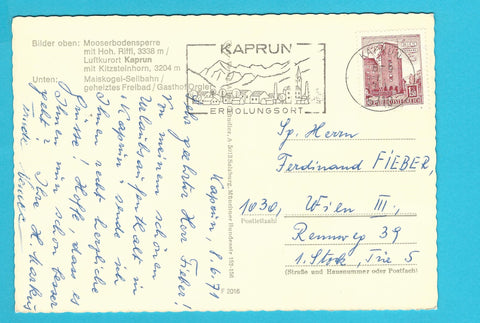 Bilder oben: Mooserbodensperre
mit Hoh. Riffl, 3338 m /
Luftkurort Kaprun
mit Kitzsteinhorn, 3204 m
Unten: Maiskogel-Seilbahn /
geheiztes Freibad / Gasthof Orgler
KAPRUN
ERHOLUNGSORT
Kaprun, 8.6.71
Sehr geehrter Herr Fieber!
Von meinem schönen
Urlaubsaufenthalt in
Kaprun sende ich
Ihnen recht herzliche
Grüsse! Hoffe, dass es
Ihnen nun schon besser
geht!
Ihre H. Markus
F 2016
Sp. Herrn
Ferdinand FIEBER,
1030, Wien III.,
Postleitzahl
Rennweg 39
1. Stock, Tür 5
(Straße und Hausnummer oder Postfach)